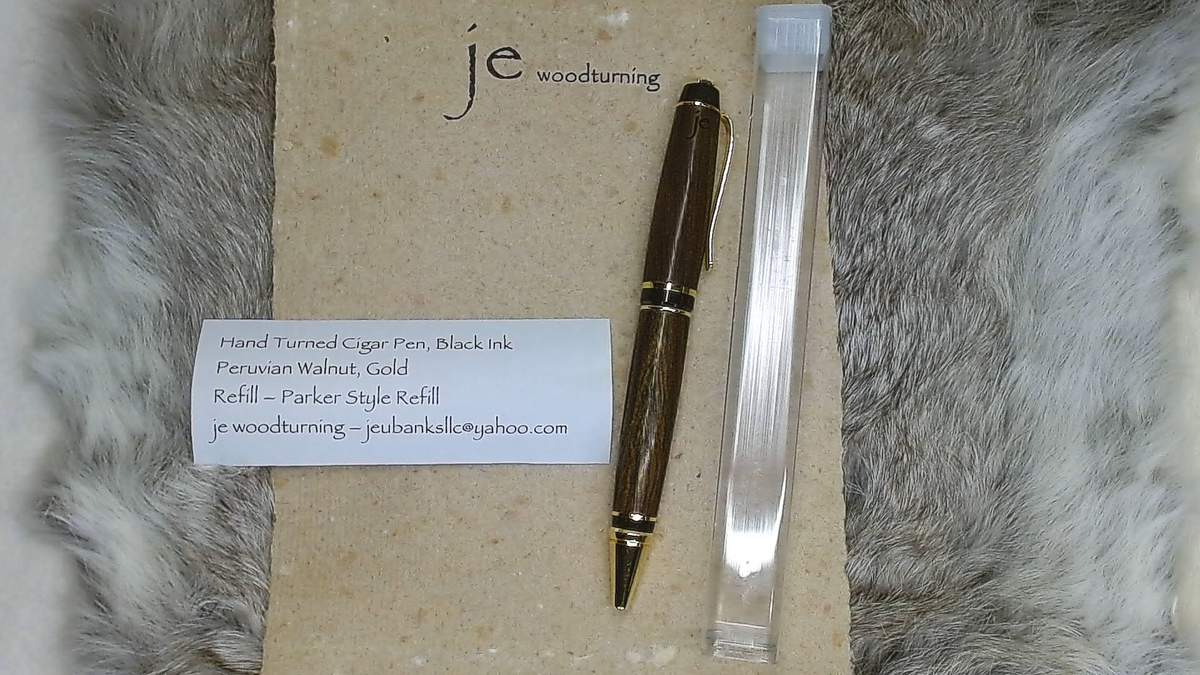 je woodturning
je
Hand Turned Cigar Pen, Black Ink
Peruvian Walnut, Gold
Refill – Parker Style Refill
je woodturning – jeubanksllc@yahoo.com